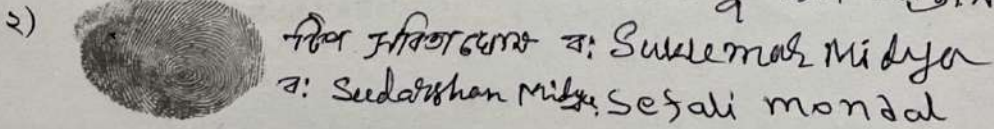 ২) টিপ সবিতা ঘোষ ব: Sukumar Midya
ব: Sudarshan Midya Sefali mondal